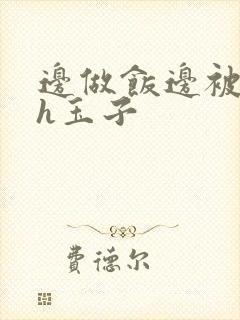 邊做飯邊被
h玉子
費德尔